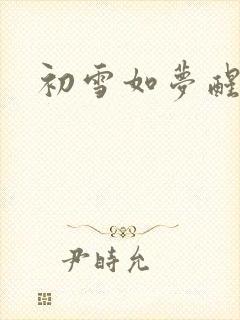 初雪如夢醒
尹時允